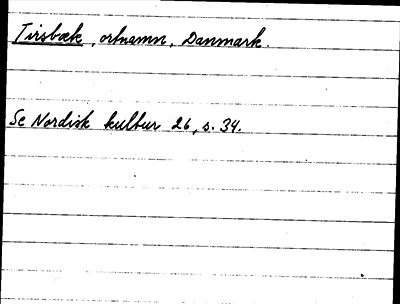 Tirsbæk, ortnamn, Danmark.
Se Nordisk kultur 26, s. 34.